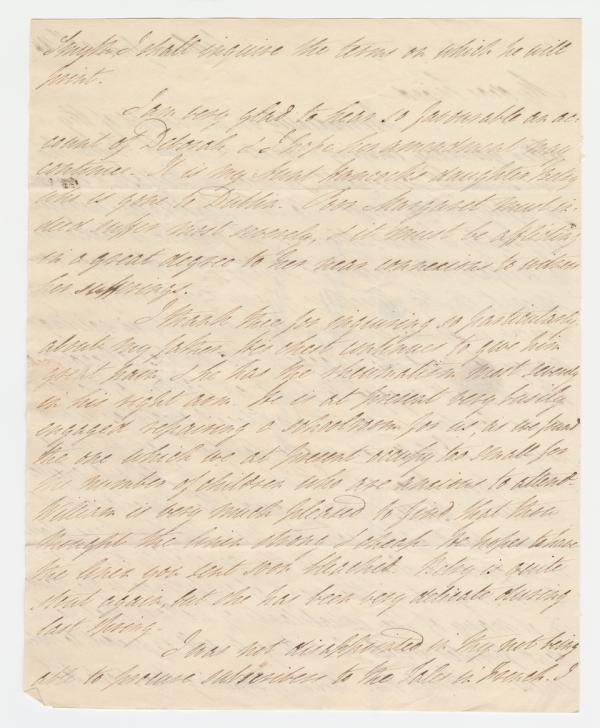 Smyth I shall inquire the terms on which he will
print.
I am very glad to hear so favourable an ac-
count of Deborah, & I hope her amendment may
continue. It is my Aunt daughter
who is gone to Dublin. Poor Margaret must in-
deed suffer most severely, & it must be afflicting
in a great degree to her near connexions to witness
her sufferings.
I thank thee for inquiring so particularly
about my father. His chest continues to give him
great pain, & he has the rheumatism most severely
in his right arm. He is at present very busily
engaged repairing a schoolroom for us, as we found
the one which we at present occupy too small for
the number of children who are anxious to attend.
William is very much pleased to find that thou
thought the linen strong & cheap. He hopes to have
the linen you sent soon bleached. is quite
stout again, but she has been very delicate during
last Spring.
I was not disappointed in thy not being
able to procure subscribers to the Tales in French. I